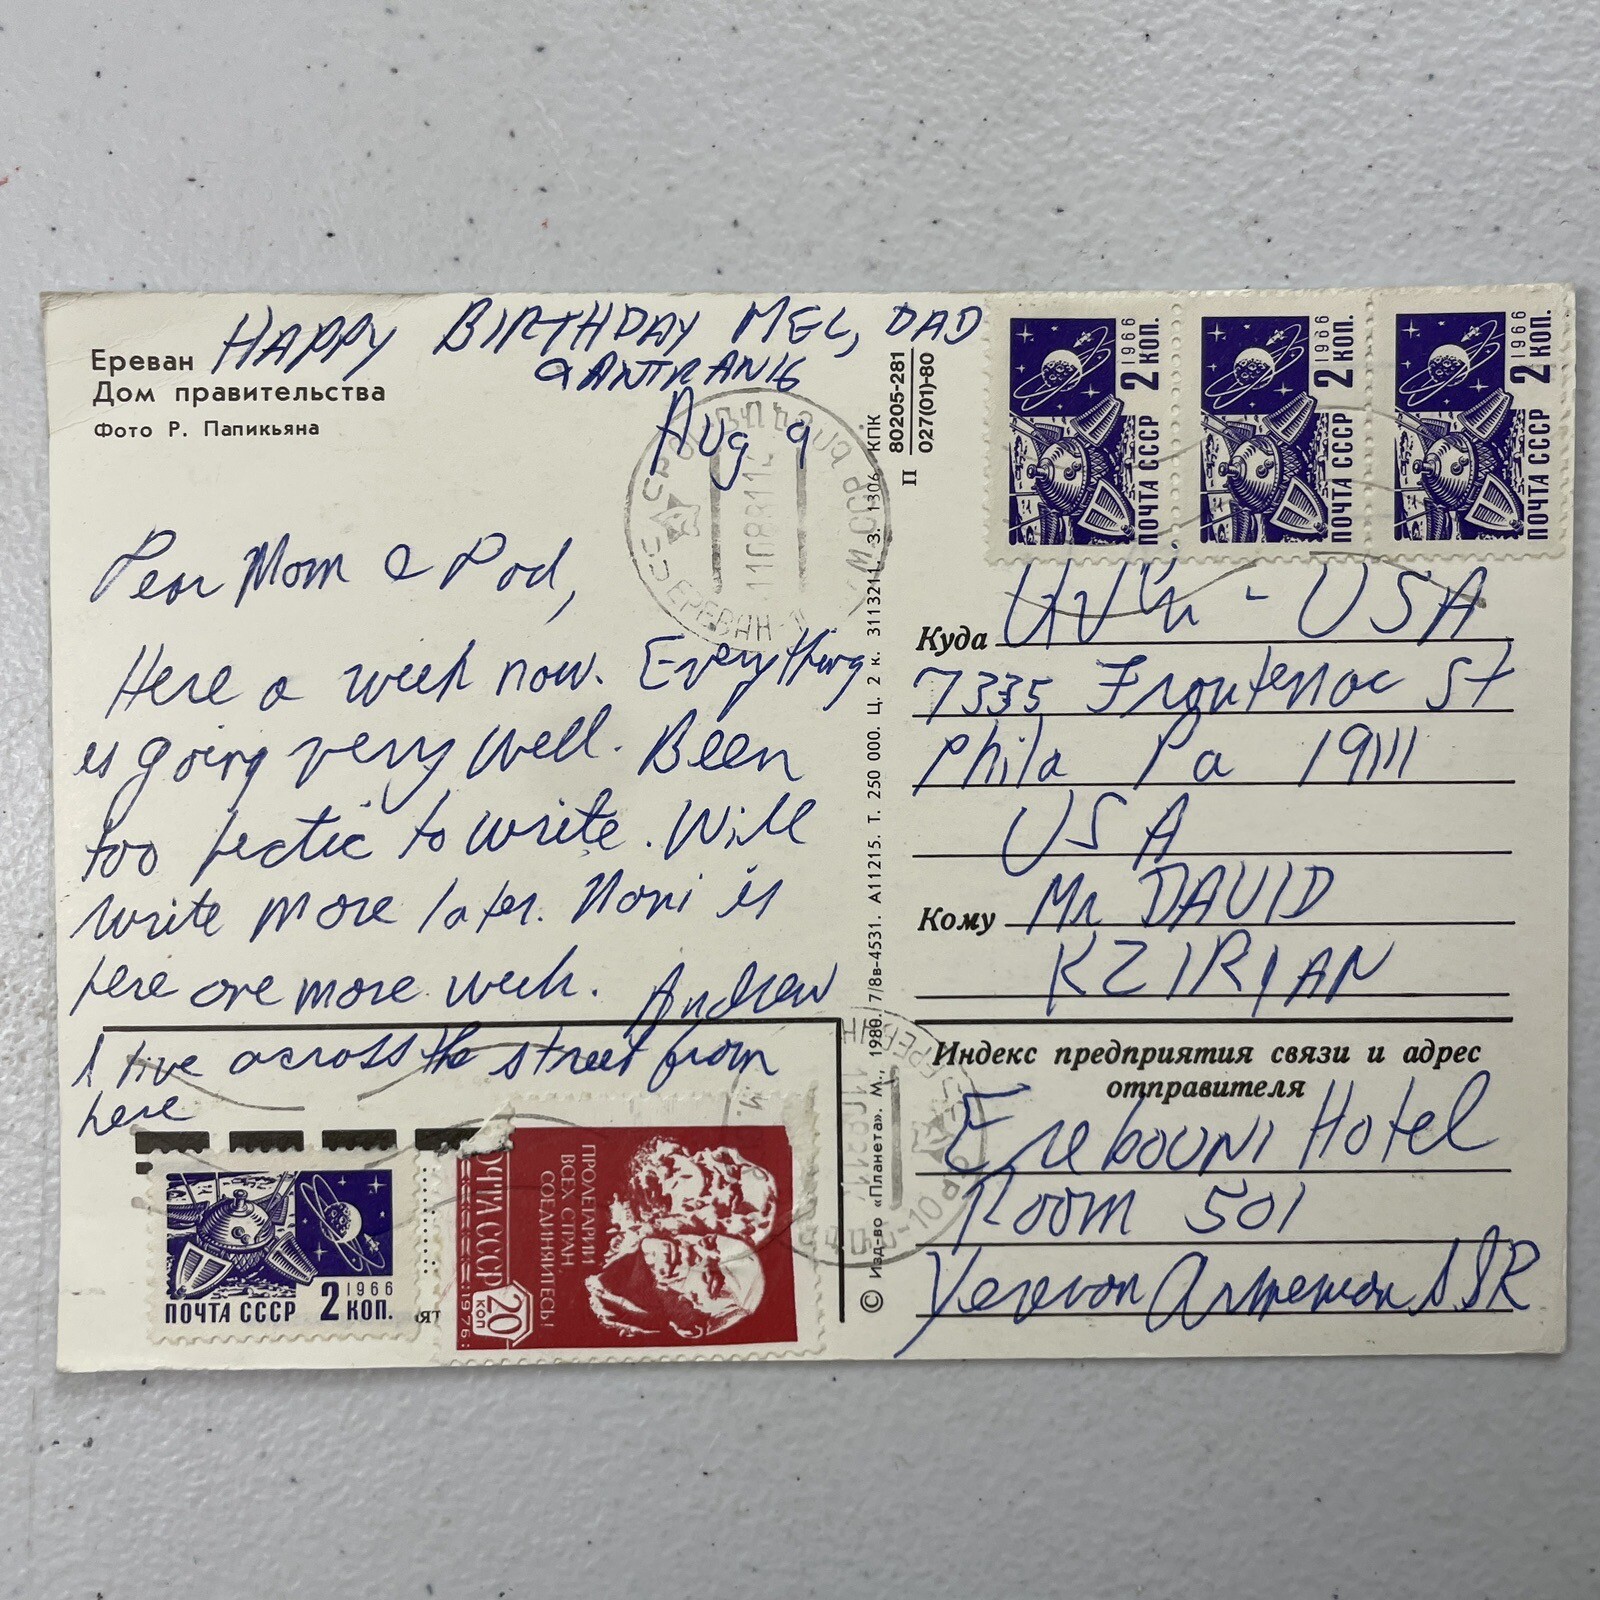 HAPPY BIRTHDAY MEL, DAD
& ANTRANIG
Ереван
Дом правительства
Фото Р. Папикьяна
Aug 9
Dear Mom & Dad,
Here a week now. Everything
is going very well. Been
too hectic to write. Will
write more later. Noni is
here one more week. Andrew
I live across the street from
here
ПОЧТА СССР 2 КОП. 1966
ПОЧТА СССР 20 КОП 1976
ПРОЛЕТАРИИ
ВСЕХ СТРАН,
СОЕДИНЯЙТЕСЬ!
© Изд-во «Планета». М., 1980. 7/8в-4531. А11215. Т. 250 000. Ц. 2 к. 3113211. З. 1306. КПК
П 80205-281
027(01)-80
ПОЧТА СССР 2 КОП. 1966
ПОЧТА СССР 2 КОП. 1966
ПОЧТА СССР 2 КОП. 1966
ЕРЕВАН
Куда - USA
7335 Frontenac St
Phila Pa 19111
USA
Кому Mr DAVID
KZIRIAN
Индекс предприятия связи и адрес
отправителя
Erebouni Hotel
Room 501
Yerevan Armenian SSR